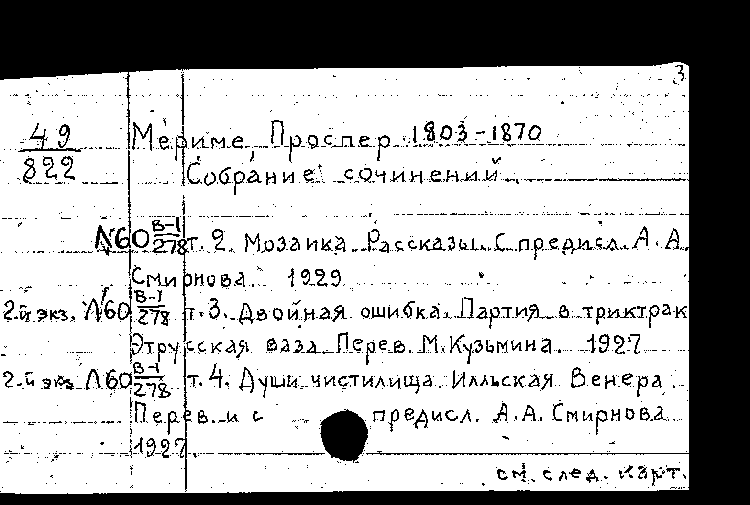 3
49
822
Мериме, Проспер 1803-1870
Собрание сочинений.
№60 В-1/278 т. 2. Мозаика. Рассказы. С предисл. А. А.
Смирнова. 1929
2-й экз. Л60 В-1/278 т. 3. Двойная ошибка. Партия в триктрак
Этрусская ваза. Перев. М. Кузьмина. 1927
2-й экз Л60 В-1/278 т. 4. Души чистилища. Илльская Венера.
Перев. и с предисл. А.А. Смирнова.
1927.
см. след. карт.